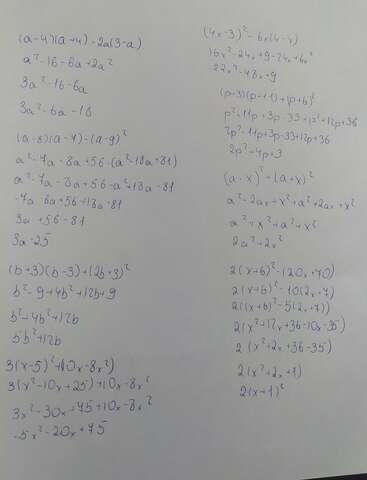 (a-4)(a+4)-2a(3-a)
a²-16-6a+2a²
3a²-16-6a
3a²-6a-16
(a-8)(a-7)-(a-9)²
a²-7a-8a+56-(a²-18a+81)
a²-7a-8a+56-a²+18a-81
-7a-8a+56+18a-81
3a+56-81
3a-25
(b+3)(b-3)+(2b+3)²
b²-9+4b²+12b+9
b²+4b²+12b
5b²+12b
3(x-5)²+(10x-8x²)
3(x²-10x+25)+10x-8x²
3x²-30x+75+10x-8x²
-5x²-20x+75
(4x-3)²-6x(4-x)
16x²-24x+9-24x+6x²
22x²-48x+9
(p-3)(p+11)+(p+6)²
p²+11p-3p-33+p²+12p+36
2p²+11p-3p-33+12p+36
2p²-4p+3
(a-x)²+(a+x)²
a²-2ax+x²+a²+2ax+x²
a²+x²+a²+x²
2a²+2x²
2(x+6)²-(20x+70)
2(x+6)²-10(2x+7)
2((x+6)²-5(2x+7))
2(x²+12x+36-10x-35)
2(x²+2x+36-35)
2(x²+2x+1)
2(x+1)²